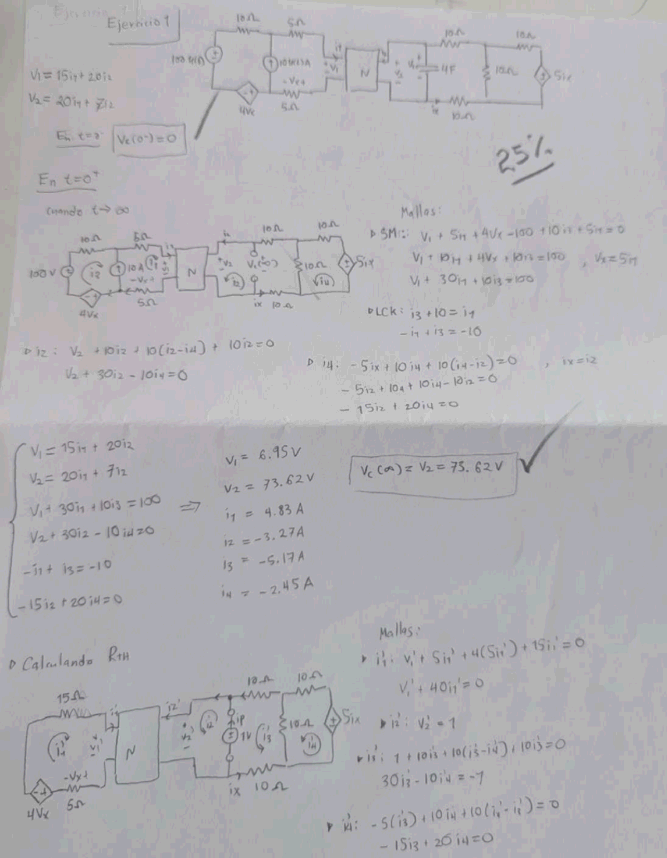 Ejercicio 1
10Ω 5Ω 10Ω 10Ω
V1 = 15i1 + 20i2
V2 = 20i1 + 7i2
N 4F 10Ω 5ix
4Vx 5Ω 10Ω
En t=0- Vc(0-) = 0
25%
En t=0+
cuando t→∞
10Ω 5Ω 10Ω 10Ω
100V i3 10A i1 N V2 Vc(∞) i2 10Ω i4 5ix
4Vx -Vx+ 5Ω ix 10Ω
Mallas:
SM1: V1 + 5i1 + 4Vx - 100 + 10i3 + 5i1 = 0
V1 + 10i1 + 4Vx + 10i3 = 100 , Vx = 5i1
V1 + 30i1 + 10i3 = 100
LCK: i3 + 10 = i1
-i1 + i3 = -10
i2: V2 + 10i2 + 10(i2-i4) + 10i2 = 0
V2 + 30i2 - 10i4 = 0
i4: -5ix + 10i4 + 10(i4-i2) = 0 , ix = i2
-5i2 + 10i4 + 10i4 - 10i2 = 0
-15i2 + 20i4 = 0
V1 = 15i1 + 20i2
V2 = 20i1 + 7i2
V1 + 30i1 + 10i3 = 100
V2 + 30i2 - 10i4 = 0
-i1 + i3 = -10
-15i2 + 20i4 = 0
⇒
V1 = 6.95V
V2 = 73.62V
i1 = 4.83A
i2 = -3.27A
i3 = -5.17A
i4 = -2.45A
Vc(∞) = V2 = 73.62V
Calculando RTH
15Ω 10Ω 10Ω
i1' V1' N i2' V2' ip 1V i3' 10Ω i4' 5ix
4Vx -Vx+ 5Ω ix 10Ω
Mallas:
i1': V1' + 5i1' + 4(5i1') + 15i1' = 0
V1' + 40i1' = 0
i2': V2' = 1
i3': 1 + 10i3' + 10(i3'-i4') + 10i3' = 0
30i3' - 10i4' = -1
i4': -5(i3') + 10i4' + 10(i4'-i3') = 0
-15i3 + 20i4 = 0